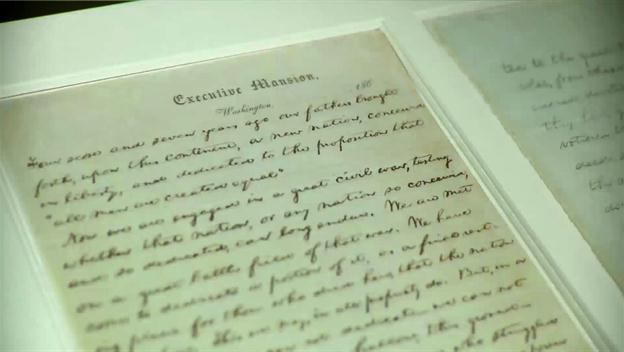 Executive Mansion,
Washington, 186
Four score and seven years ago our fathers brought
forth, upon this continent, a new nation, conceived
in liberty, and dedicated to the proposition that
"all men are created equal"
Now we are engaged in a great civil war, testing
whether that nation, or any nation so conceived,
and so dedicated, can long endure. We are met
on a great battle field of that war. We have
come to dedicate a portion of it, as a final rest-
ing place for those who died here, that the nation
This we may, in all propriety do. But, in a
not dedicate we can not
hallow, this ground
who struggled
power
ted to the great